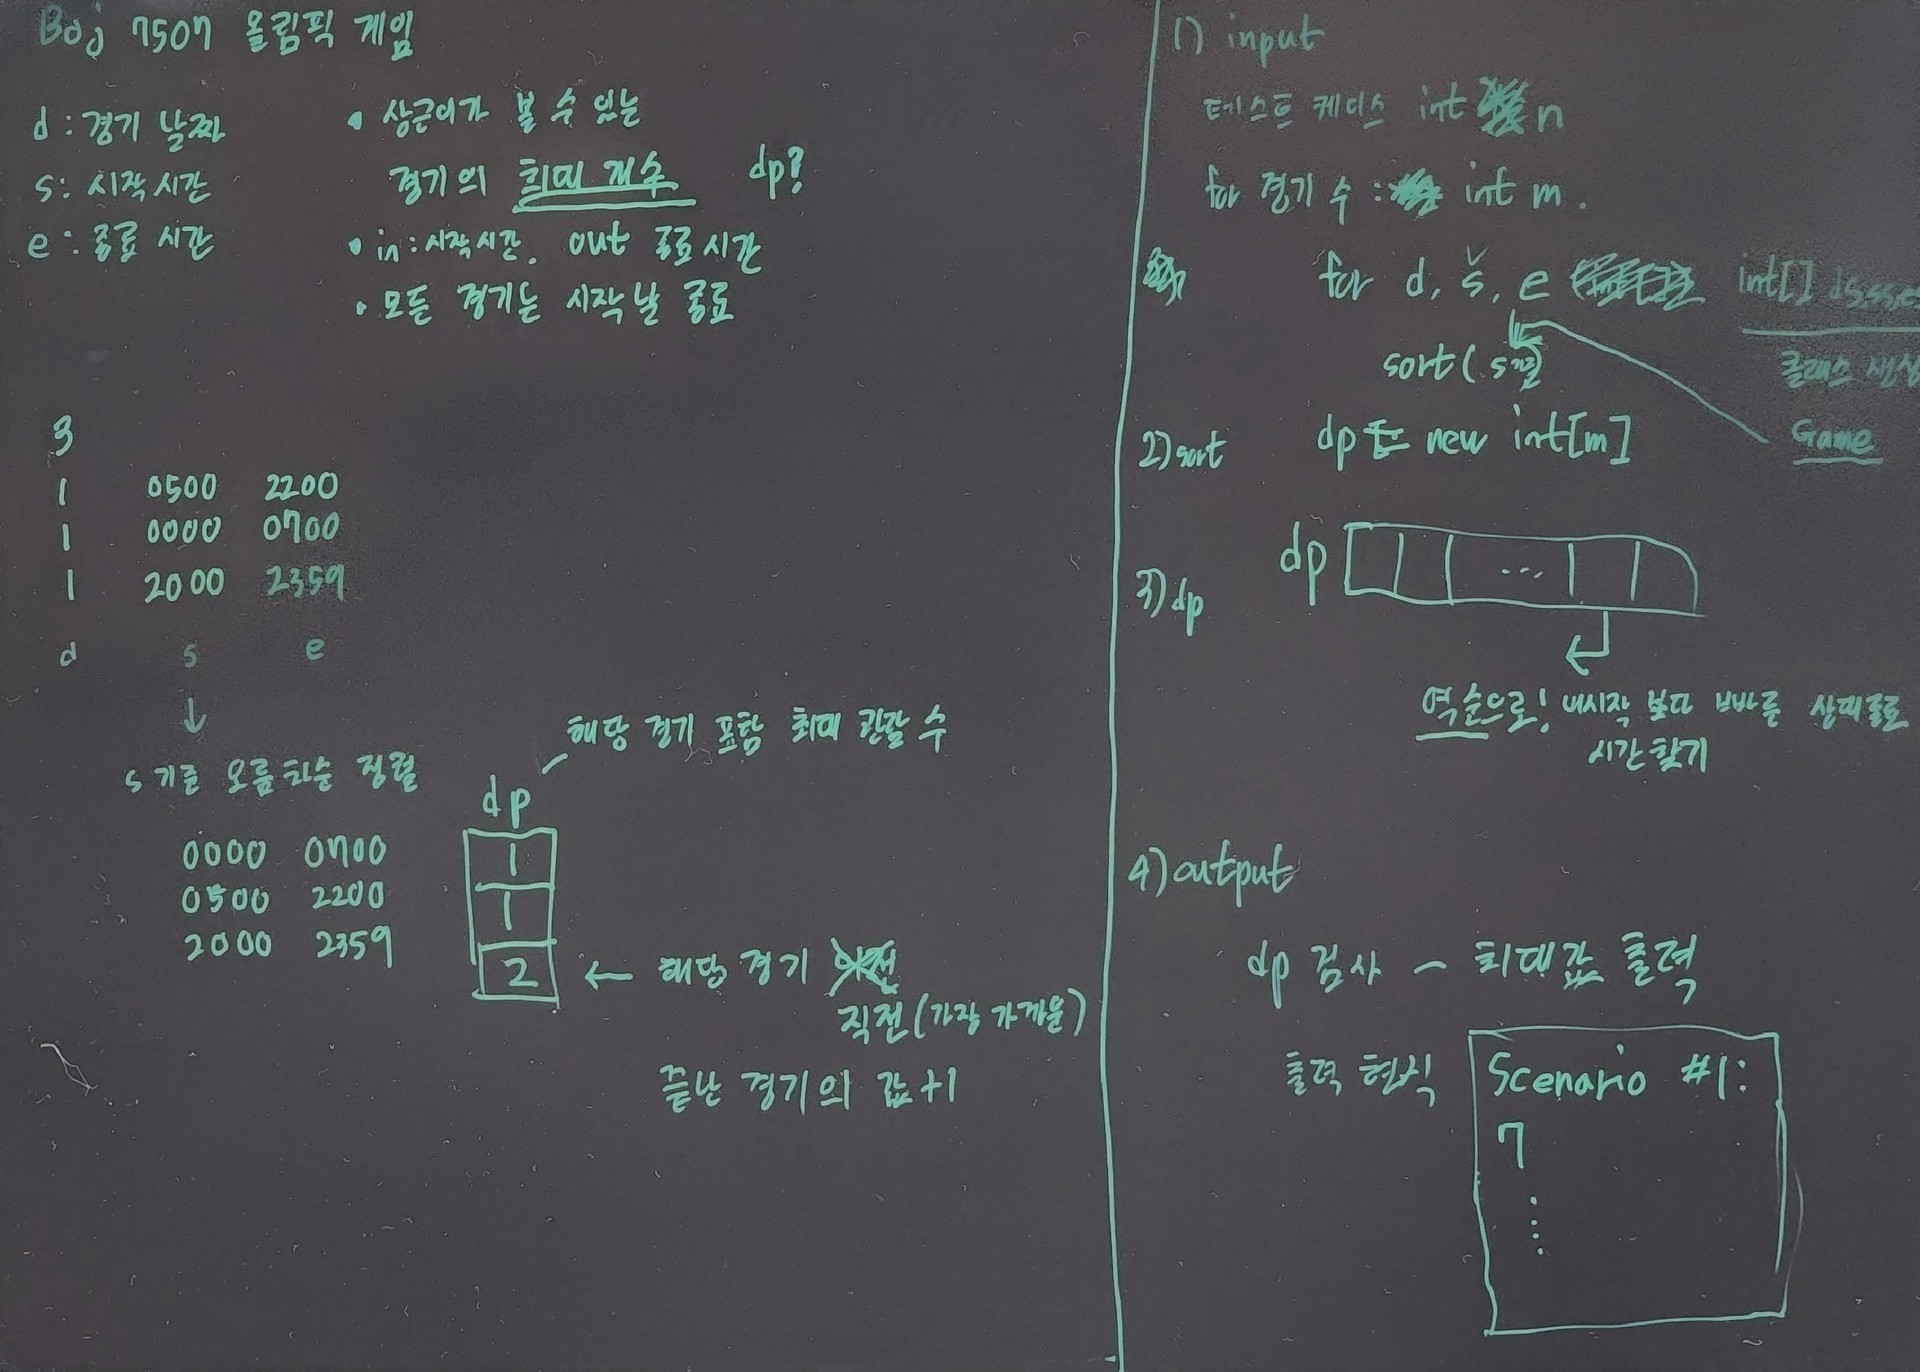 Boj 7507 올림픽 게임
d : 경기 날짜
s : 시작 시간
e : 종료 시간
• 상근이가 볼 수 있는
경기의 최대 개수 dp?
• in : 시작시간. out 종료시간
• 모든 경기는 시작날 종료
3
1 0500 2200
1 0000 0700
1 2000 2359
d s e
↓
s 기준 오름차순 정렬
0000 0700
0500 2200
2000 2359
해당 경기 포함 최대 관람 수
dp
1
1
2
← 해당 경기
직전 (가장 가까운)
끝난 경기의 값 +1
1) input
테스트 케이스 int n
for 경기 수 : int m.
for d, s, e int[] ds,ss,es
sort( s
클래스 생성
Game
2) sort dp = new int[m]
3) dp
dp ...
역순으로! 내시작 보다 빠른 상대종료
시간 찾기
4) output
dp 검사 - 최대값 출력
출력 형식
Scenario #1:
7
⋮